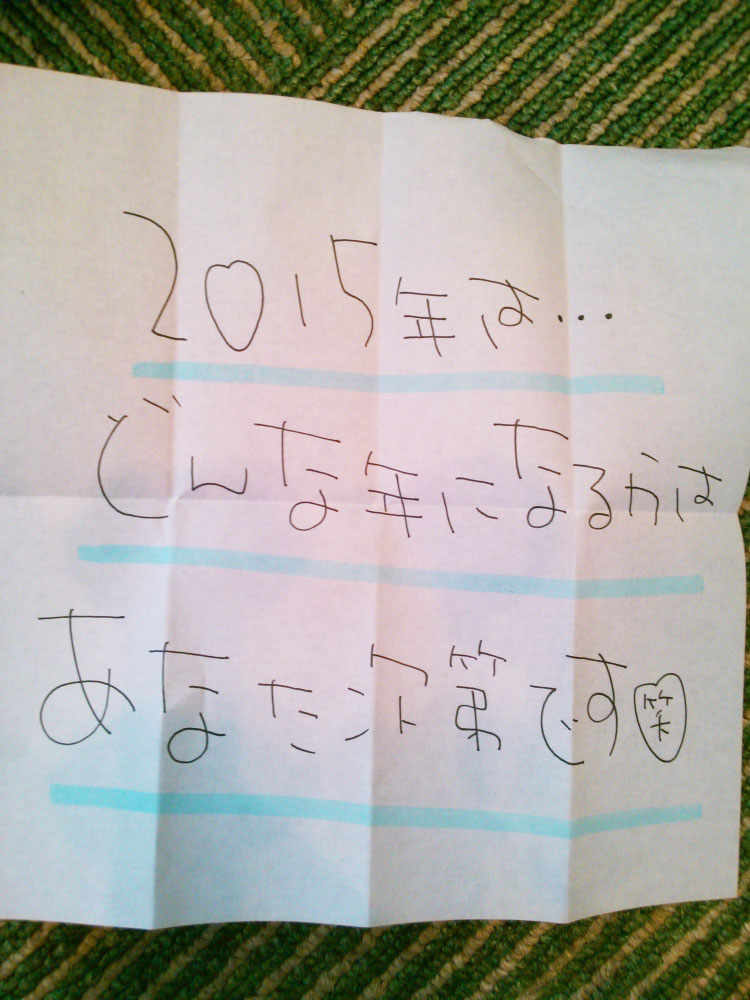 2015年は...
どんな年になるかは
あなた次第です笑